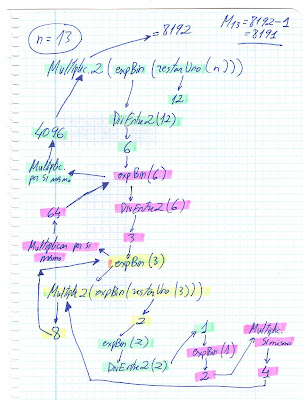 n=13
=8192
M13=8192-1
=8191
Multiplic.2(expBin(restarUno(n)))
12
DivEntre2(12)
4096
6
Multiplic.
por si mismo
expBin(6)
64
DivEntre2(6)
3
Multiplicar por si
mismo
expBin(3)
Multiplic2(expBin(restarUno(3)))
2
8
expBin(2)
DivEntre2(2)
1
expBin(1)
2
Multiplic.
Si mismo
4